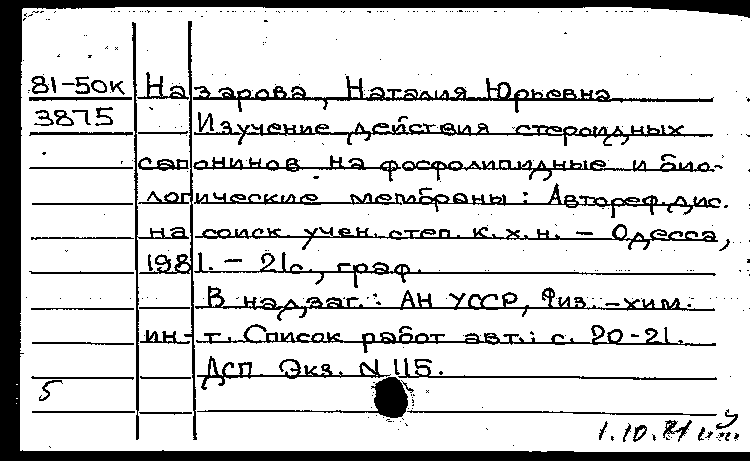 81-50к Назарова, Наталия Юрьевна
3875 Изучение действия стероидных
сапонинов на фосфолипидные и био-
логические мембраны : Автореф.дис.
на соиск. учен. степ. к.х.н. - Одесса,
1981. - 21с., граф.
В надзаг.: АН УССР, Физ.-хим.
ин-т. Список работ авт.: с. 20-21.
Дсп. Экз. N 115.
5
1.10.81